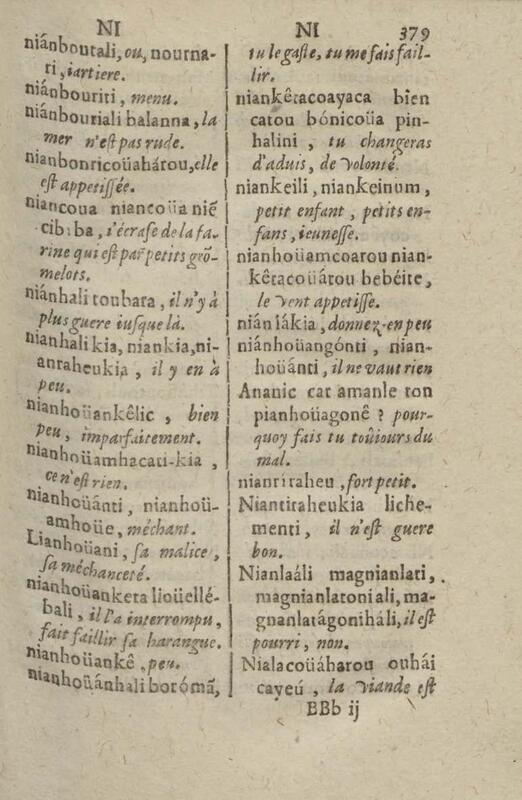 NI
niánboutali, ou, nourna-
ri, iartiere.
niánbouriti, menu.
nianbouriali balanna, la
mer n'est pas rude.
nianbonricoüahárou, elle
est appetissée.
niancoua niancoüa niẽ
cib: ba, i'écrase de la fa-
rine qui est par petits grõ-
melots.
niánhali toubara, il n'y à
plus guere iusque là.
nianhali kia, niankia, ni-
anraheukia, il y en à
peu.
nianhoüankêlic, bien
peu, imparfaitement.
nianhoüamhacati-kia,
ce n'est rien.
nianhoüánti, nianhoü-
amhoüe, méchant.
Lianhoüani, sa malice,
sa méchanceté.
nianhoüanketa lioüellé-
bali, il l'a interrompu,
fait faillir sa harangue.
nianhoüankê, peu.
nianhoüánhali borómã,
NI 379
tu le gaste, tu me fais fail-
lir.
niankêtacoayaca bien
catou bónicoüa pin-
halini, tu changeras
d'aduis, de volonté.
niankeili, niankeinum,
petit enfant, petits en-
fans, ieunesse.
nianhoüamcoarou nian-
kêtacoüátou bebéite,
le vent appetisse.
nián iákia, donnez-en peu
niánhoüangónti, nian-
hoüánti, il ne vaut rien
Ananic cat amanle ton
pianhoüagonê? pour-
quoy fais tu toûiours du
mal.
nianriraheu, fort petit.
Niantiraheukia liche-
menti, il n'est guere
bon.
Nianlaáli magnianlati,
magnianlatoniali, ma-
gnanlatágoniháli, il est
pourri, non.
Nialacoüáharou ouhái
cayeú, la viande est
BBb ij